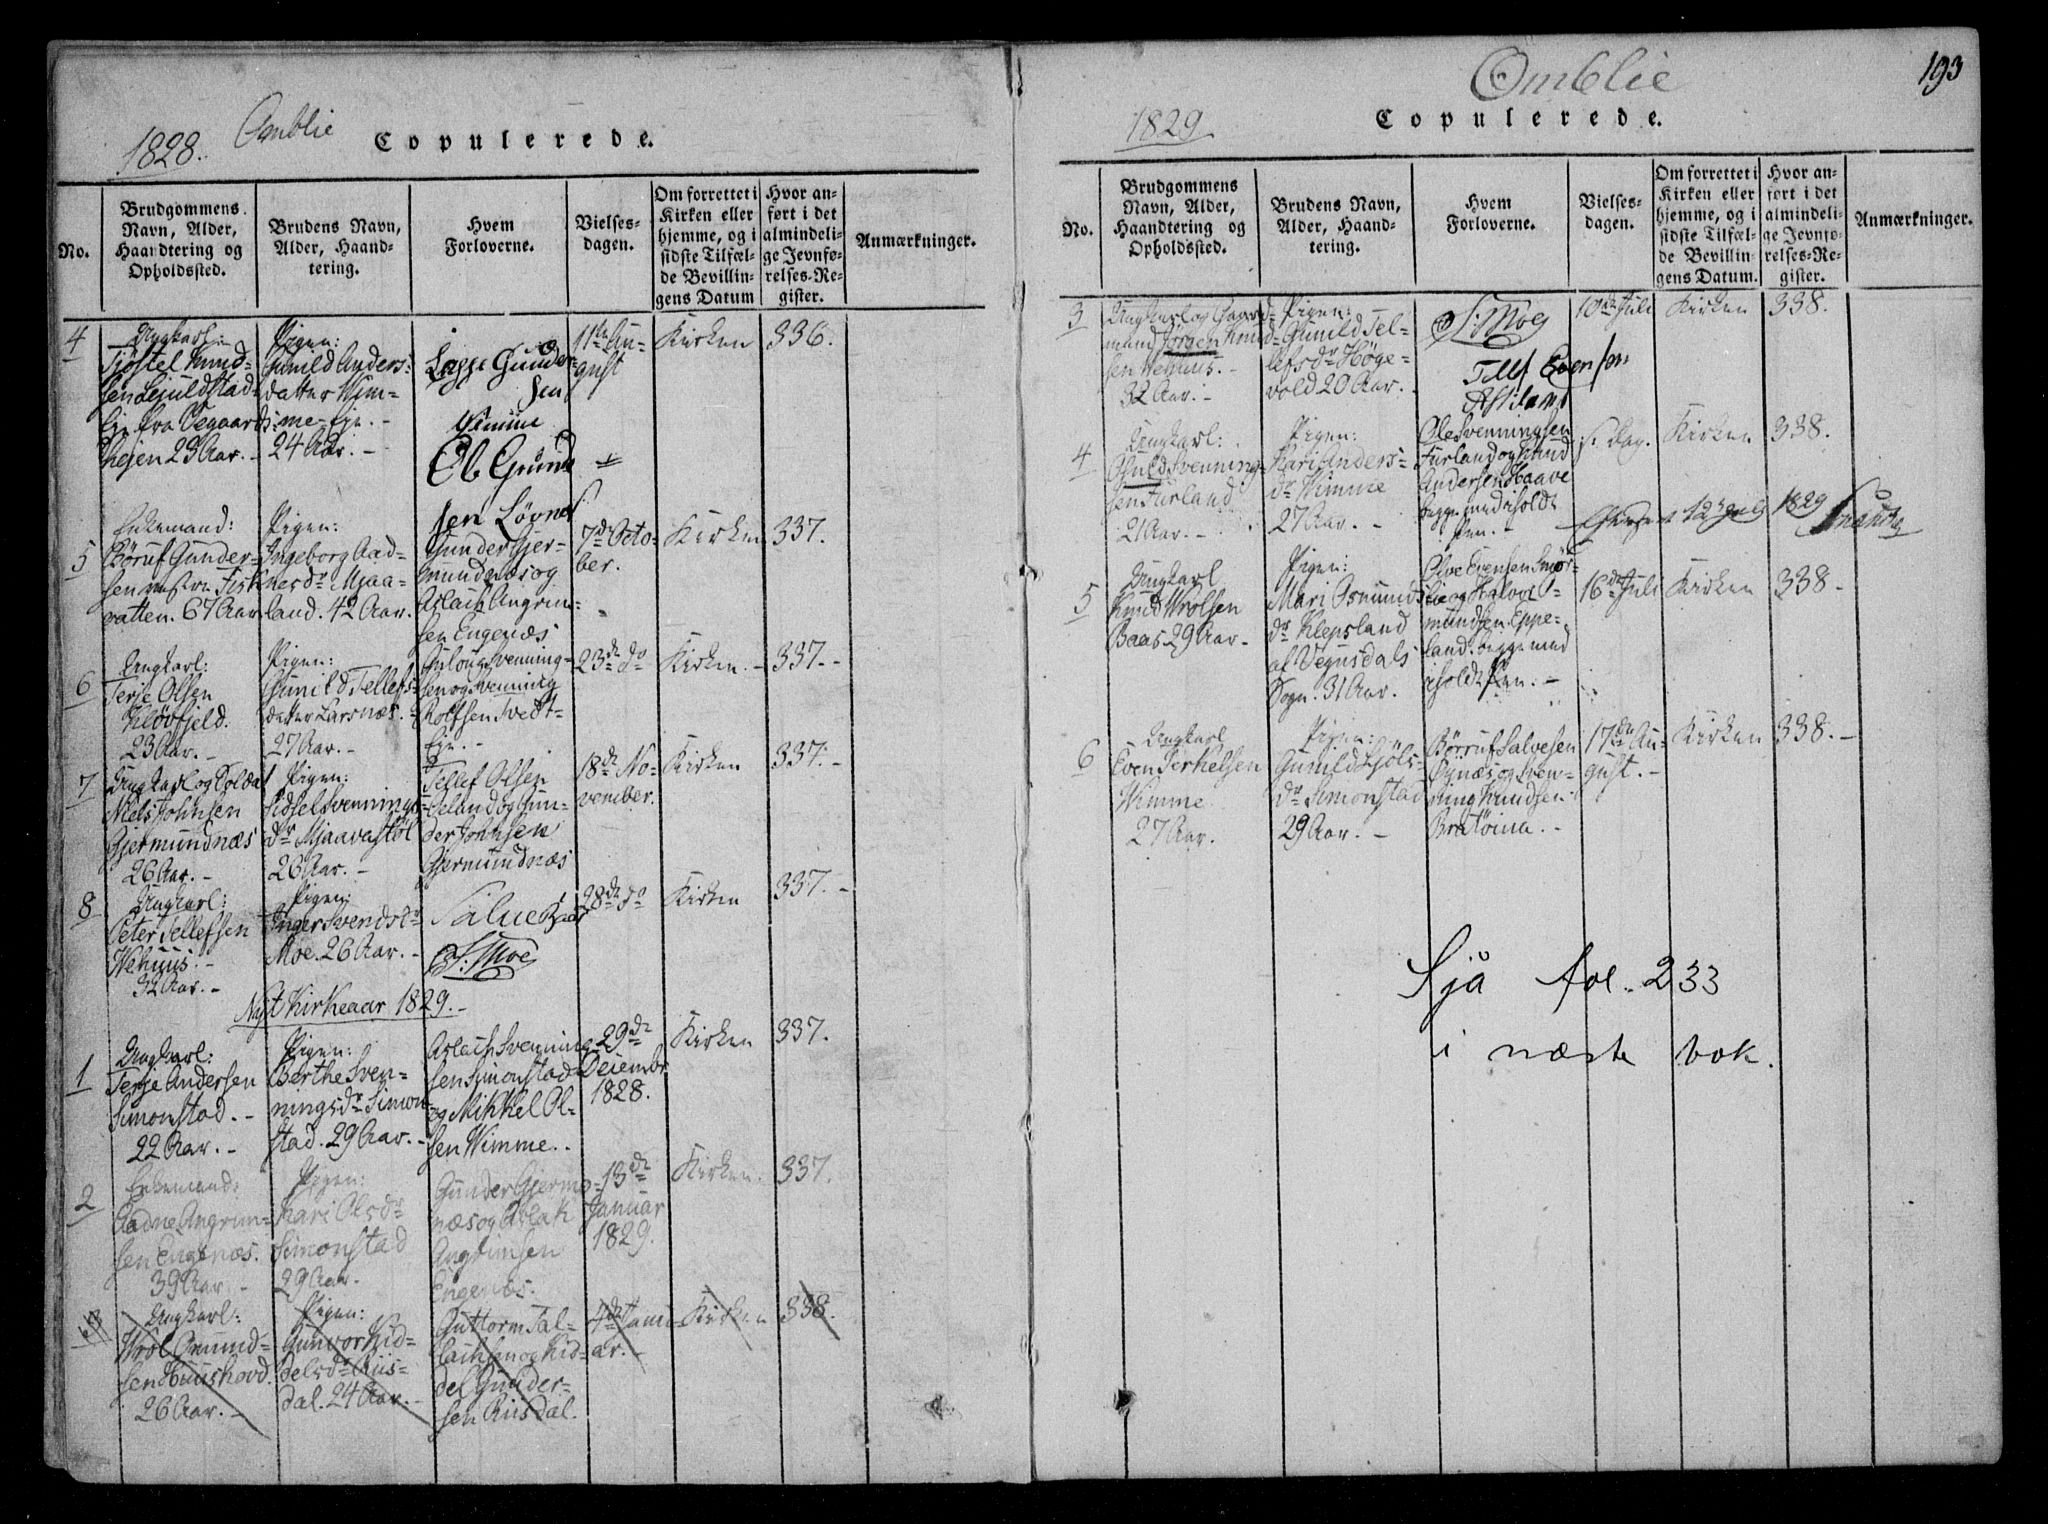 Omblie
1828.
Copulerede.
No.
Brudgommens
Navn, Alder,
Haandtering og
Opholdssted.
Brudens Navn,
Alder, Haand-
tering.
Hvem
Forloverne.
Vielses-
dagen.
Om forrettet i
Kirken eller
hjemme, og i
sidste Tilfæl-
de Bevillin-
gens Datum
Hvor an-
ført i det
almindeli-
ge Jevnfø-
relses-Re-
gister.
Anmærkninger.
4
Ungkarl:
Tjöstel Knud-
sen
Eje fra Vegaards-
hejen 23 Aar. -
Pigen:
Gunild Anders-
datter Wim-
me-Eje. -
24 Aar. -
Gunder-
sen
Wimme
Ole Gund
sen Lövnes
11te Au-
gust
Kirken
336.
5
Enkemand:
Böruf Gunder-
sen Fisk-
vatten. 67 Aar
Pigen:
Ingeborg Aad-
nesdr Mjaa-
land. 42 Aar.
Gunder Gjer-
mundnæs og
Aslach Angrim-
sen Engenæs
7d Octo-
ber.
Kirken
337.
6
Ungkarl:
Terje Olsen
Klövfjeld.
23 Aar. -
Pigen:
Gunild Tellefs-
datter Larsnæs.
27 Aar. -
Svenning-
sen og Svenning
Rolfsen Svedt-
Eje. -
23de do
Kirken. -
337. -
7
Ungkarl og Soldat
Niels Johnsen
Gjermundnæs
26 Aar. -
Pigen:
Sidsel Svennings-
dr Mjaavastöl
26 Aar. -
Tellef Olsen
Seland og Gun-
der Johnsen
Gjermundnæs
18de No-
vember.
Kirken
337. -
8
Ungkarl:
Peter Tellefsen
Wehuus. -
32 Aar. -
Pigen:
Inger Svendsdr
Moe. 26 Aar. -
Salve
S: Moe
28de do
Kirken
337. -
Nyt Kirkeaar 1829. -
1
Ungkarl:
Terje Andersen
Simonstad. -
22 Aar. -
Pigen:
Berthe Sven-
ningsdr Simon-
stad. 29 Aar. -
Aslach Svenning-
sen Simonstad
og Mikkel Ol-
sen Wimme. -
29de
Decembr
1828.
Kirken
337.
2
Enkemand:
Aadne Angrim-
sen Engenæs.
39 Aar -
Pigen:
Kari Olsdr
Simonstad
29 Aar.
Gunder Gjerm-
næs og Aslak
Angrimsen
Engenæs.
13de
Januar
1829.
Kirken.
337.
3
Ungkarl:
Wrol Osmund-
sen Huushovd.
26 Aar. -
Pigen:
Gunvor Kid-
delsdr Riis-
dal. 24 Aar. -
Guttorm Tal-
lachsen og Kid-
del Gunder-
sen Riisdal.
4de Janu-
ar. -
Kirken
338.
Omblie
193
1829
Copulerede.
No.
Brudgommens
Navn, Alder,
Haandtering og
Opholdssted.
Brudens Navn,
Alder, Haand-
tering.
Hvem
Forloverne.
Vielses-
dagen.
Om forrettet i
Kirken eller
hjemme, og i
sidste Tilfæl-
de Bevillin-
gens Datum.
Hvor an-
ført i det
almindeli-
ge Jevnfø-
relses-Re-
gister.
Anmærkninger.
3
Ungkarl og Gaard-
mand Jörgen Knud-
sen Wehuus. -
32 Aar. -
Pigen:
Gunild Tel-
lefsdr Höge-
vold 20 Aar. -
S: Moe
Tellf Evensen
Askland
10de Juli
Kirken
338.
4
Ungkarl:
Osuld Svenning-
sen Furland
21 Aar. -
Pigen:
Kari Anders-
dr Wimme
27 Aar. -
Ole Svenningsen
Furland og Knud
Andersen Haave
begge med iholdt
Pen. -
s. Dag.
Kirken
338.
12 Juli 1829
5
Ungkarl
Knud Wrolsen
Baas 29 Aar -
Pigen:
Mari Osmunds-
dr Klepsland
af Vegusdals
Sogn. 31 Aar.
Olve Evensen Smör-
lie og Halvor O-
mundsen Eppe-
land. begge med
iholdt Pen. -
16de Juli
Kirken
338 -
6
Ungkarl
Even Terkelsen
Wimme
27 Aar.
Pigen:
Gunild Kjöls-
dr Simonstad
29 Aar. -
Börruf Salvesen
Bynæs og Sven-
ning Knudsen
Bratöina. -
17de Au-
gust. -
Kirken
338. -
Sjå fol. 233
i næste bok.